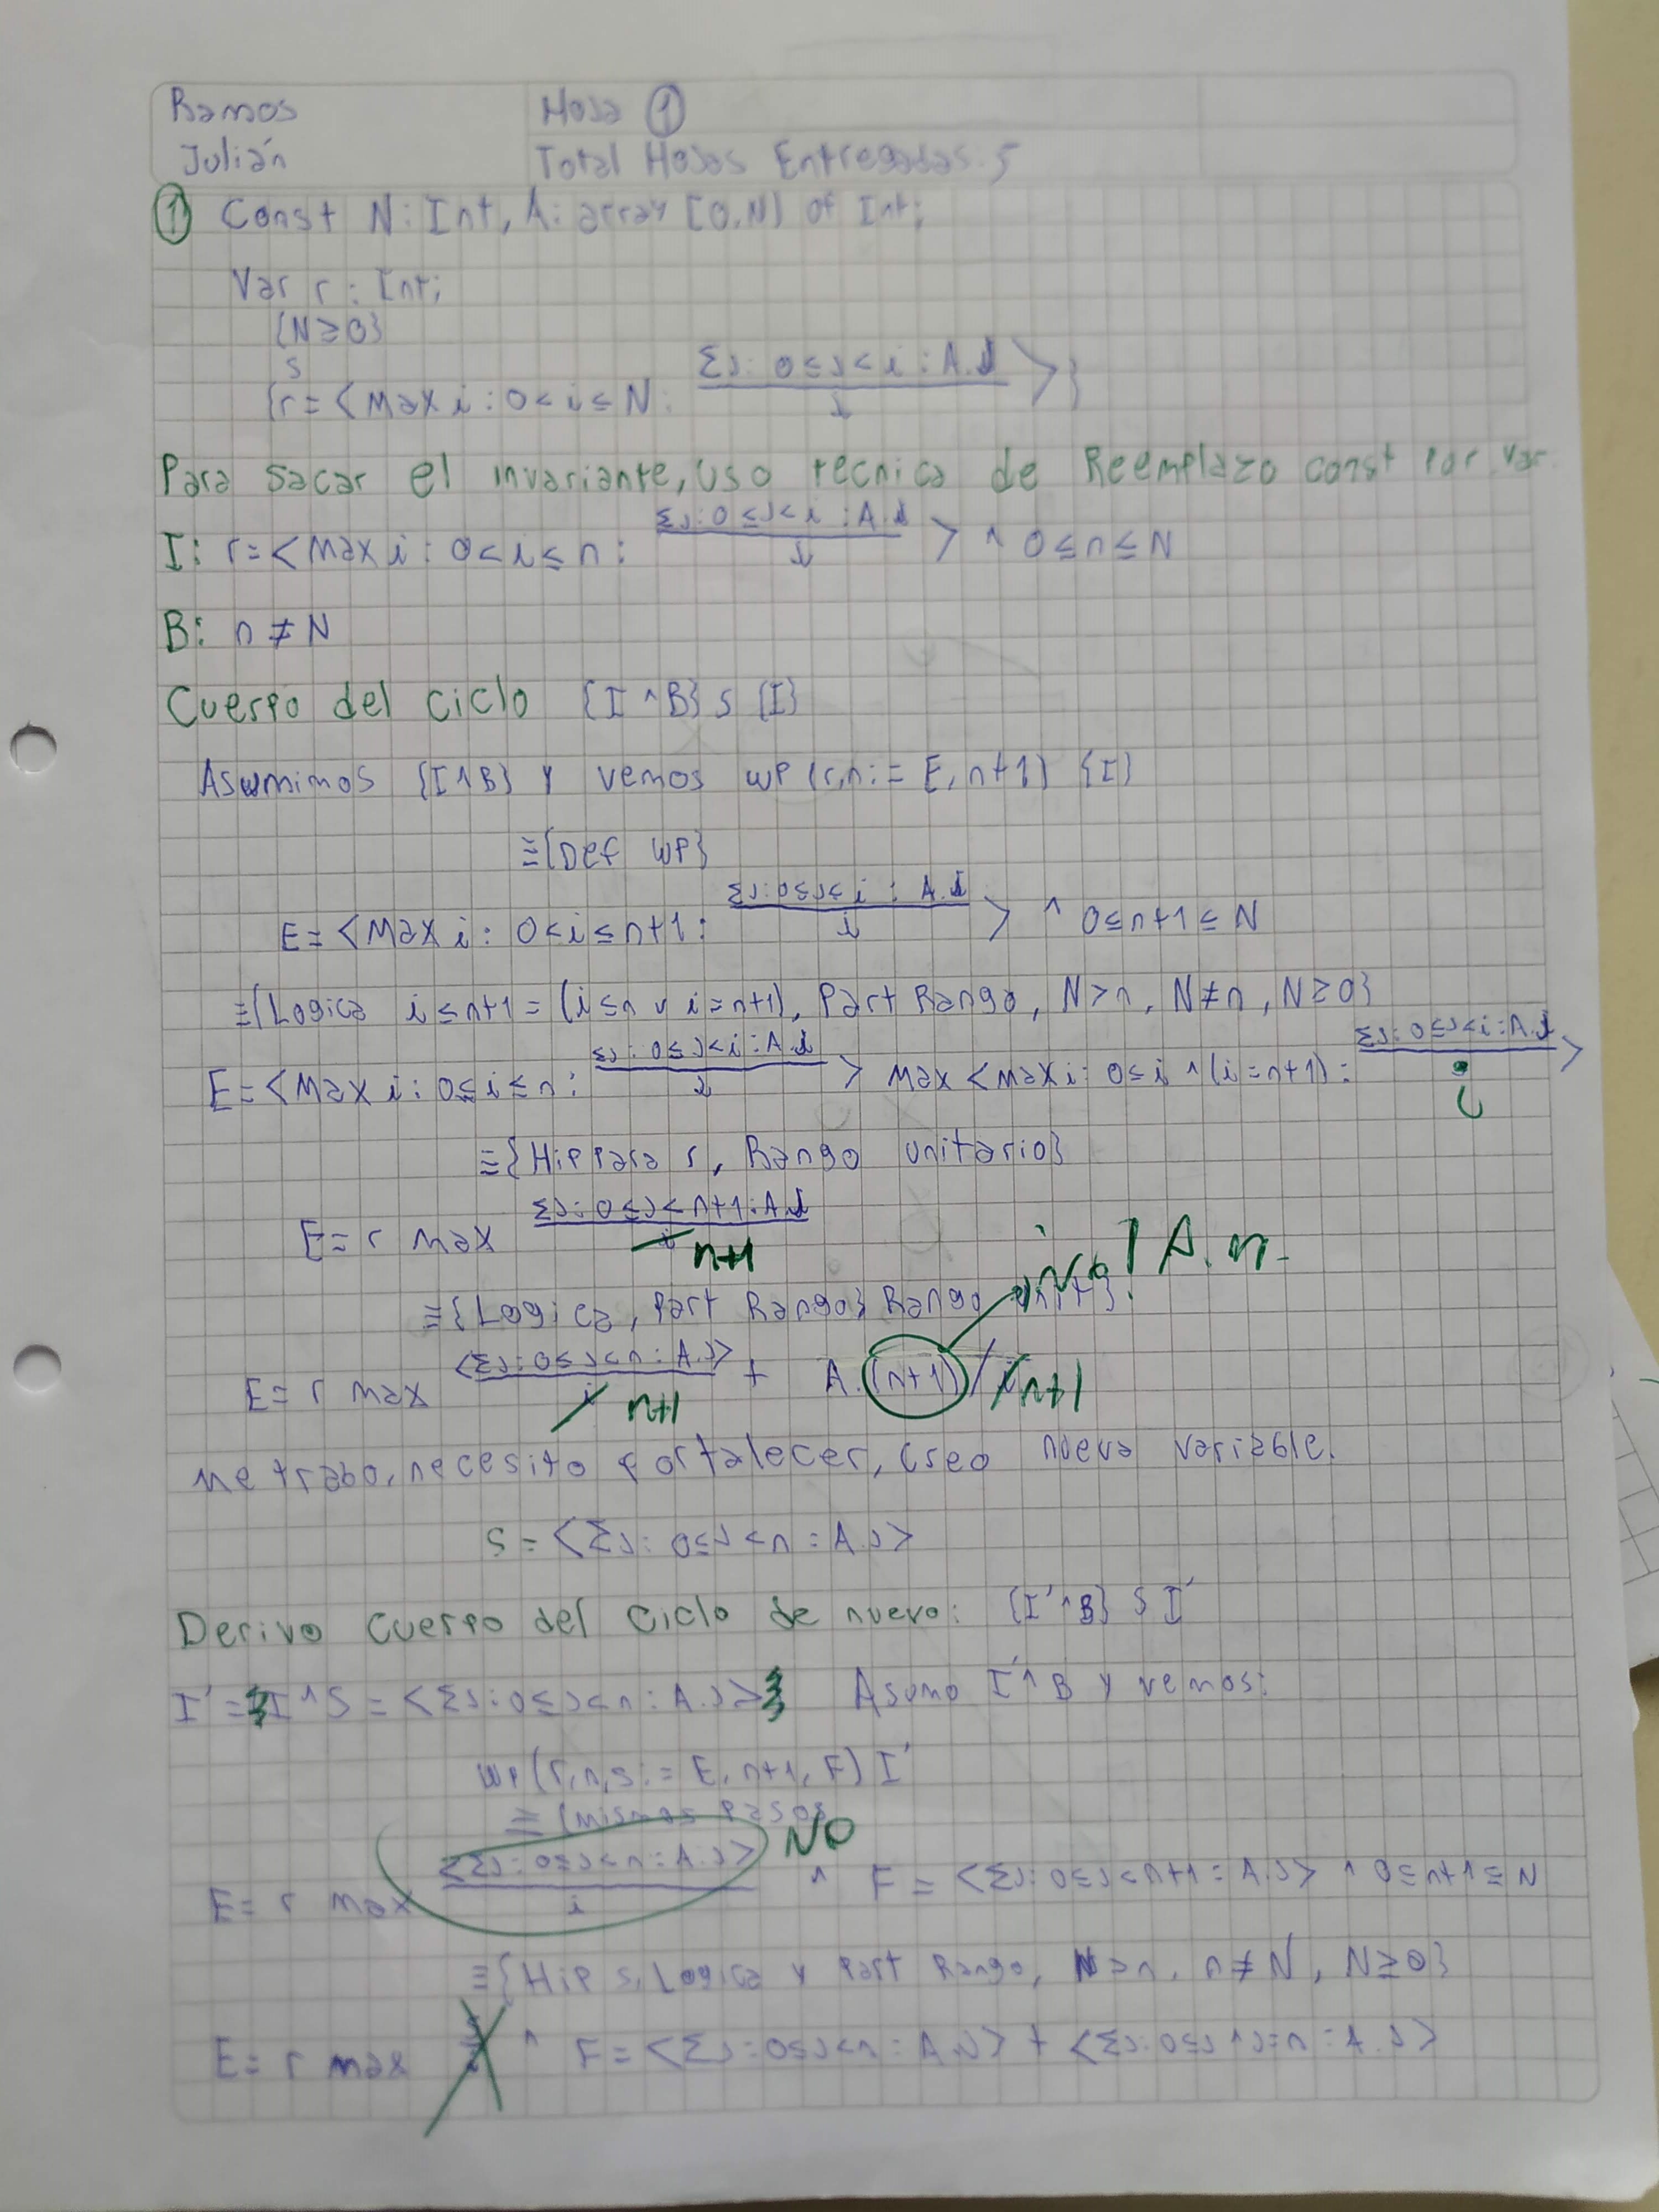 Ramos
Julián
Hoja ①
Total Hojas Entregadas: 5
① Const N: Int, A: array [0,N) of Int;
Var r : Int;
{N≥0}
S
{r = <Max i : 0<i≤N : Σj: 0≤j<i : A.j / i >}
Para sacar el invariante, uso tecnica de Reemplazo const por var.
I: r = <Max i : 0<i≤n : Σj: 0≤j<i : A.j / i > ^ 0≤n≤N
B: n ≠ N
Cuerpo del ciclo {I ^ B} S {I}
Asumimos {I ^ B} y vemos wp (r,n := E, n+1) {I}
≡{Def wp}
E = <Max i : 0<i≤n+1 : Σj: 0≤j<i : A.j / i > ^ 0≤n+1≤N
≡{Logica i≤n+1 = (i≤n v i=n+1), Part Rango, N>n, N≠n, N≥0}
E = <Max i : 0≤i≤n : Σj: 0≤j<i : A.j / i > max <max i : 0≤i ^ (i=n+1) : Σj: 0≤j<i : A.j / i >
≡{Hip para r, Rango unitario}
E = r max Σj: 0≤j<n+1 : A.j / i n+1
No! A.n
≡{Logica, Part Rango} Rango unit}
E = r max <Σj: 0≤j<n : A.j> / i n+1 + A.(n+1) / i n+1
Me trabo, necesito fortalecer, creo nueva variable.
S = <Σj: 0≤j<n : A.j>
Derivo cuerpo del ciclo de nuevo: {I' ^ B} S I'
I' = I ^ S = <Σj: 0≤j<n : A.j> Asumo I' ^ B y vemos:
wp (r,n,s := E, n+1, F) I'
≡ {mismos pasos
NO
E = r max <Σj: 0≤j<n : A.j> / i ^ F = <Σj: 0≤j<n+1 : A.j> ^ 0≤n+1≤N
≡{Hip s, Logica y Part Rango, N>n, n≠N, N≥0}
E = r max ^ F = <Σj: 0≤j<n : A.j> + <Σj: 0≤j ^ j=n : A.j>